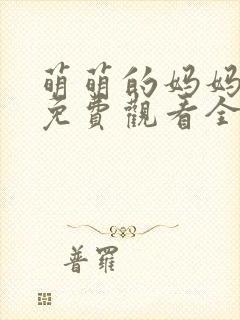 萌萌的妈妈
免費觀看全
普羅